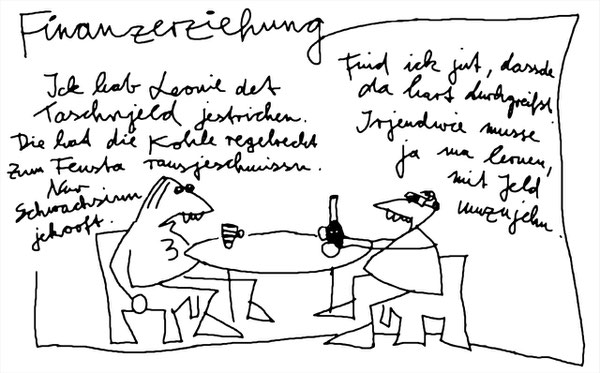 Finanzerziehung
Ick hab Leonie det
Taschnjeld jestrichen.
Die hat die Kohle regelrecht
zum Fensta rausjeschmissn.
Nur
Schwachsinn
jekooft.
Find ick jut, dassde
da hart durchgreifst.
Irjendwie musse
ja ma lernen,
mit Jeld
umzujehn.